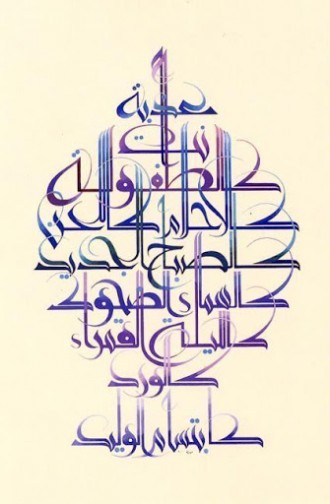 عذبة
أنت
كالطفولة
كالأحلام كاللحن
كالصباح الجديد
كالسماء الضحوك
كالليلة القمراء
كالورد
كابتسام الوليد